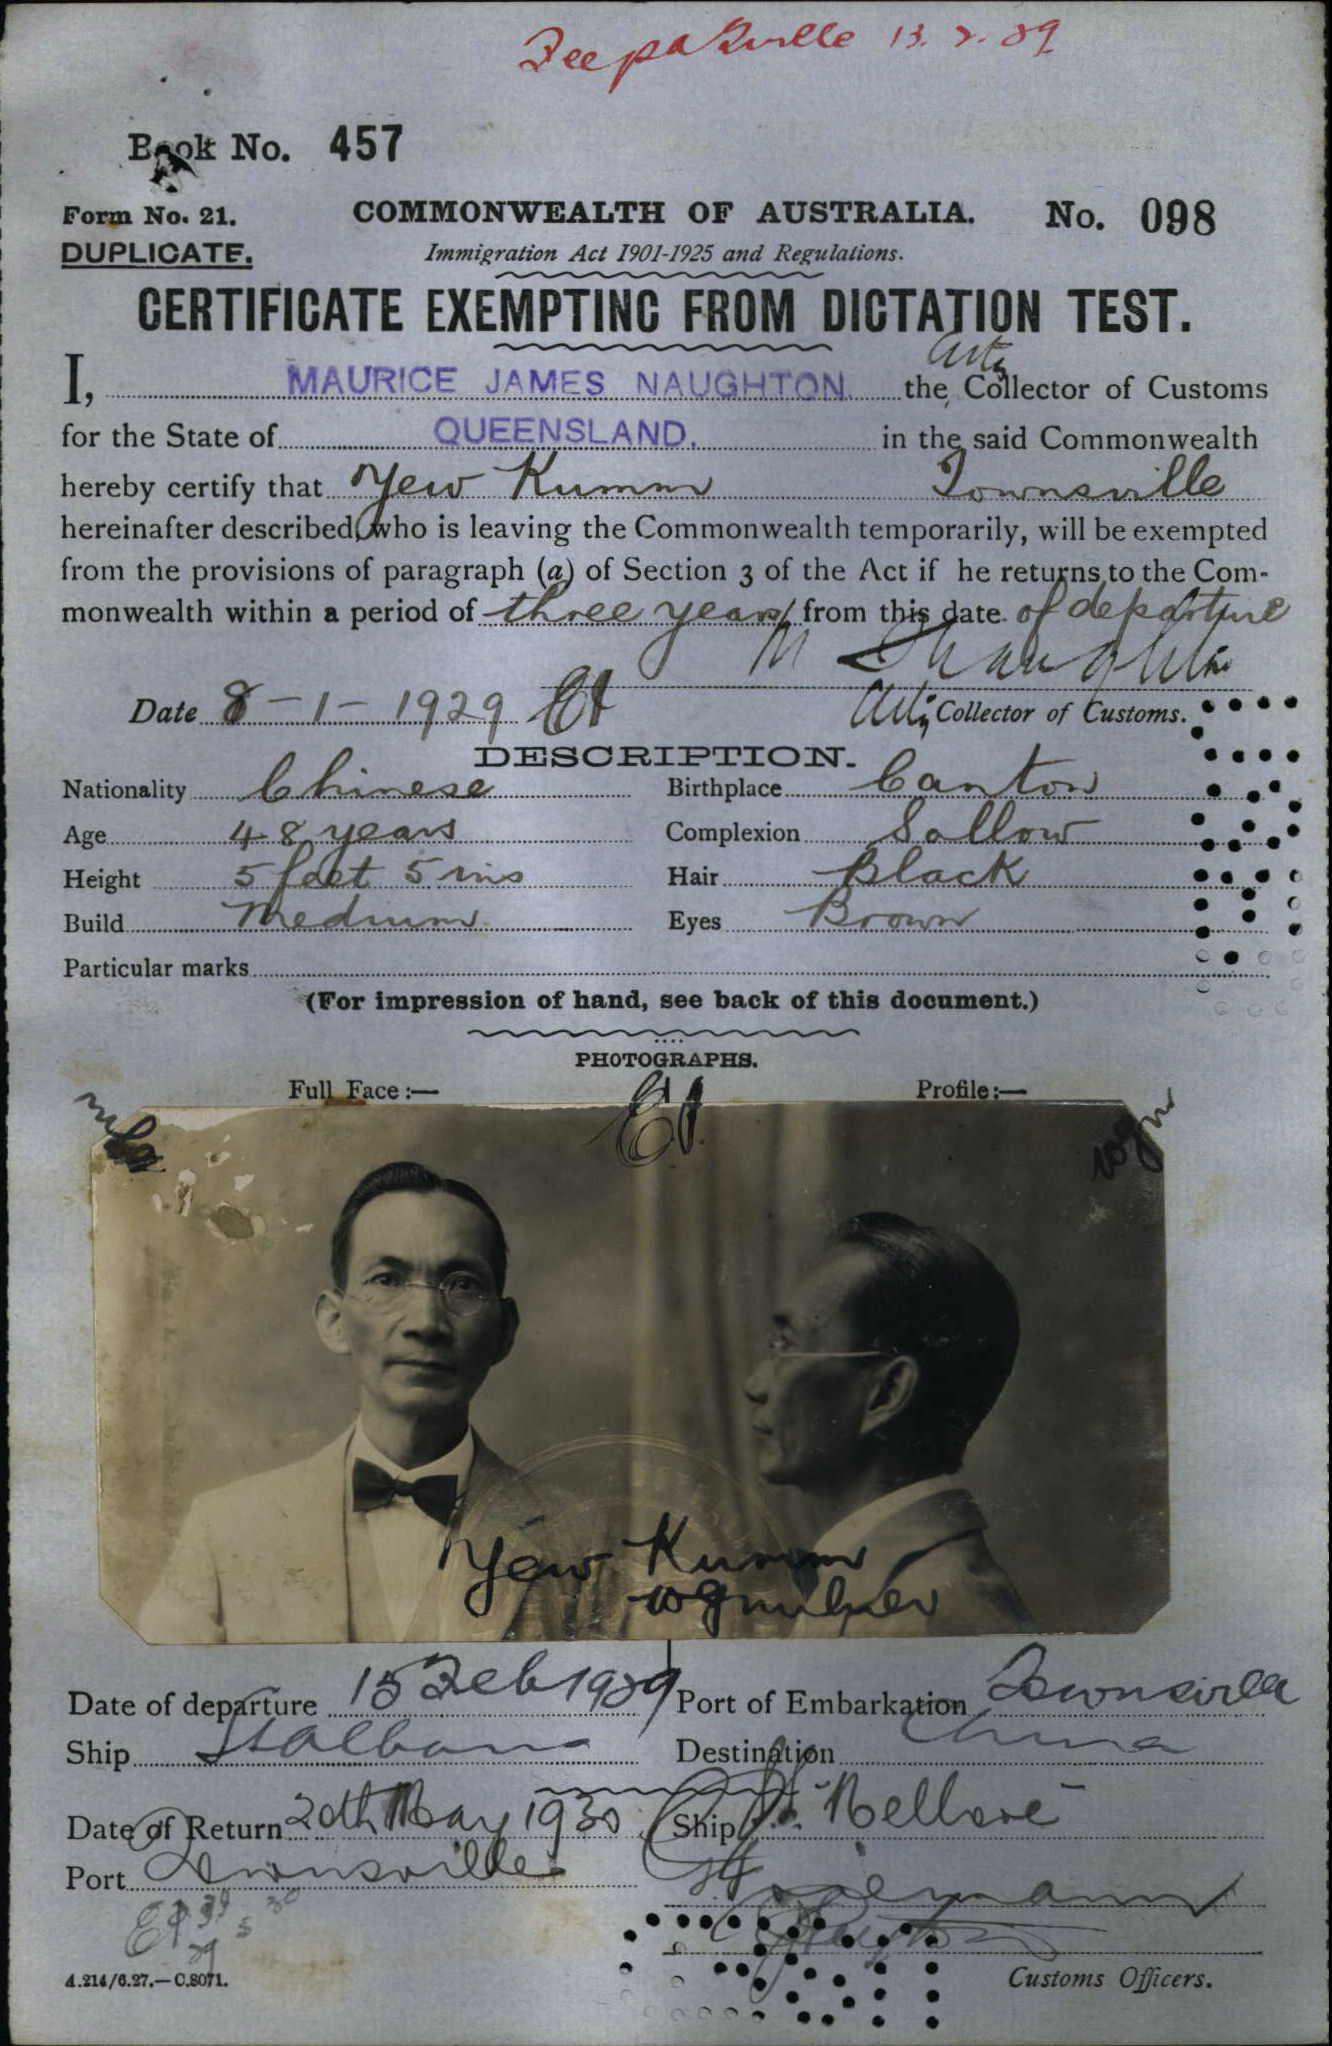 13.2.29
Book No. 457
Form No. 21. COMMONWEALTH OF AUSTRALIA. No. 098
DUPLICATE. Immigration Act 1901-1925 and Regulations.
CERTIFICATE EXEMPTING FROM DICTATION TEST.
Actg
I, MAURICE JAMES NAUGHTON. the Collector of Customs
for the State of QUEENSLAND. in the said Commonwealth
hereby certify that Yew Kumm Townsville
hereinafter described, who is leaving the Commonwealth temporarily, will be exempted
from the provisions of paragraph (a) of Section 3 of the Act if he returns to the Com-
monwealth within a period of three years from this date of departure
Date 8-1-1929 Actg Collector of Customs.
DESCRIPTION.
Nationality Chinese Birthplace Canton
Age 48 years Complexion Sallow
Height 5 feet 5 ins Hair Black
Build Medium Eyes Brown
Particular marks
(For impression of hand, see back of this document.)
PHOTOGRAPHS.
Full Face:— Profile:—
Yew Kumm
Date of departure 15 Feb 1929 Port of Embarkation Townsville
Ship St Albans Destination China
Date of Return 20th May 1930 Ship Nellore
Port Townsville
4.214/6.27.—C.8071. Customs Officers.